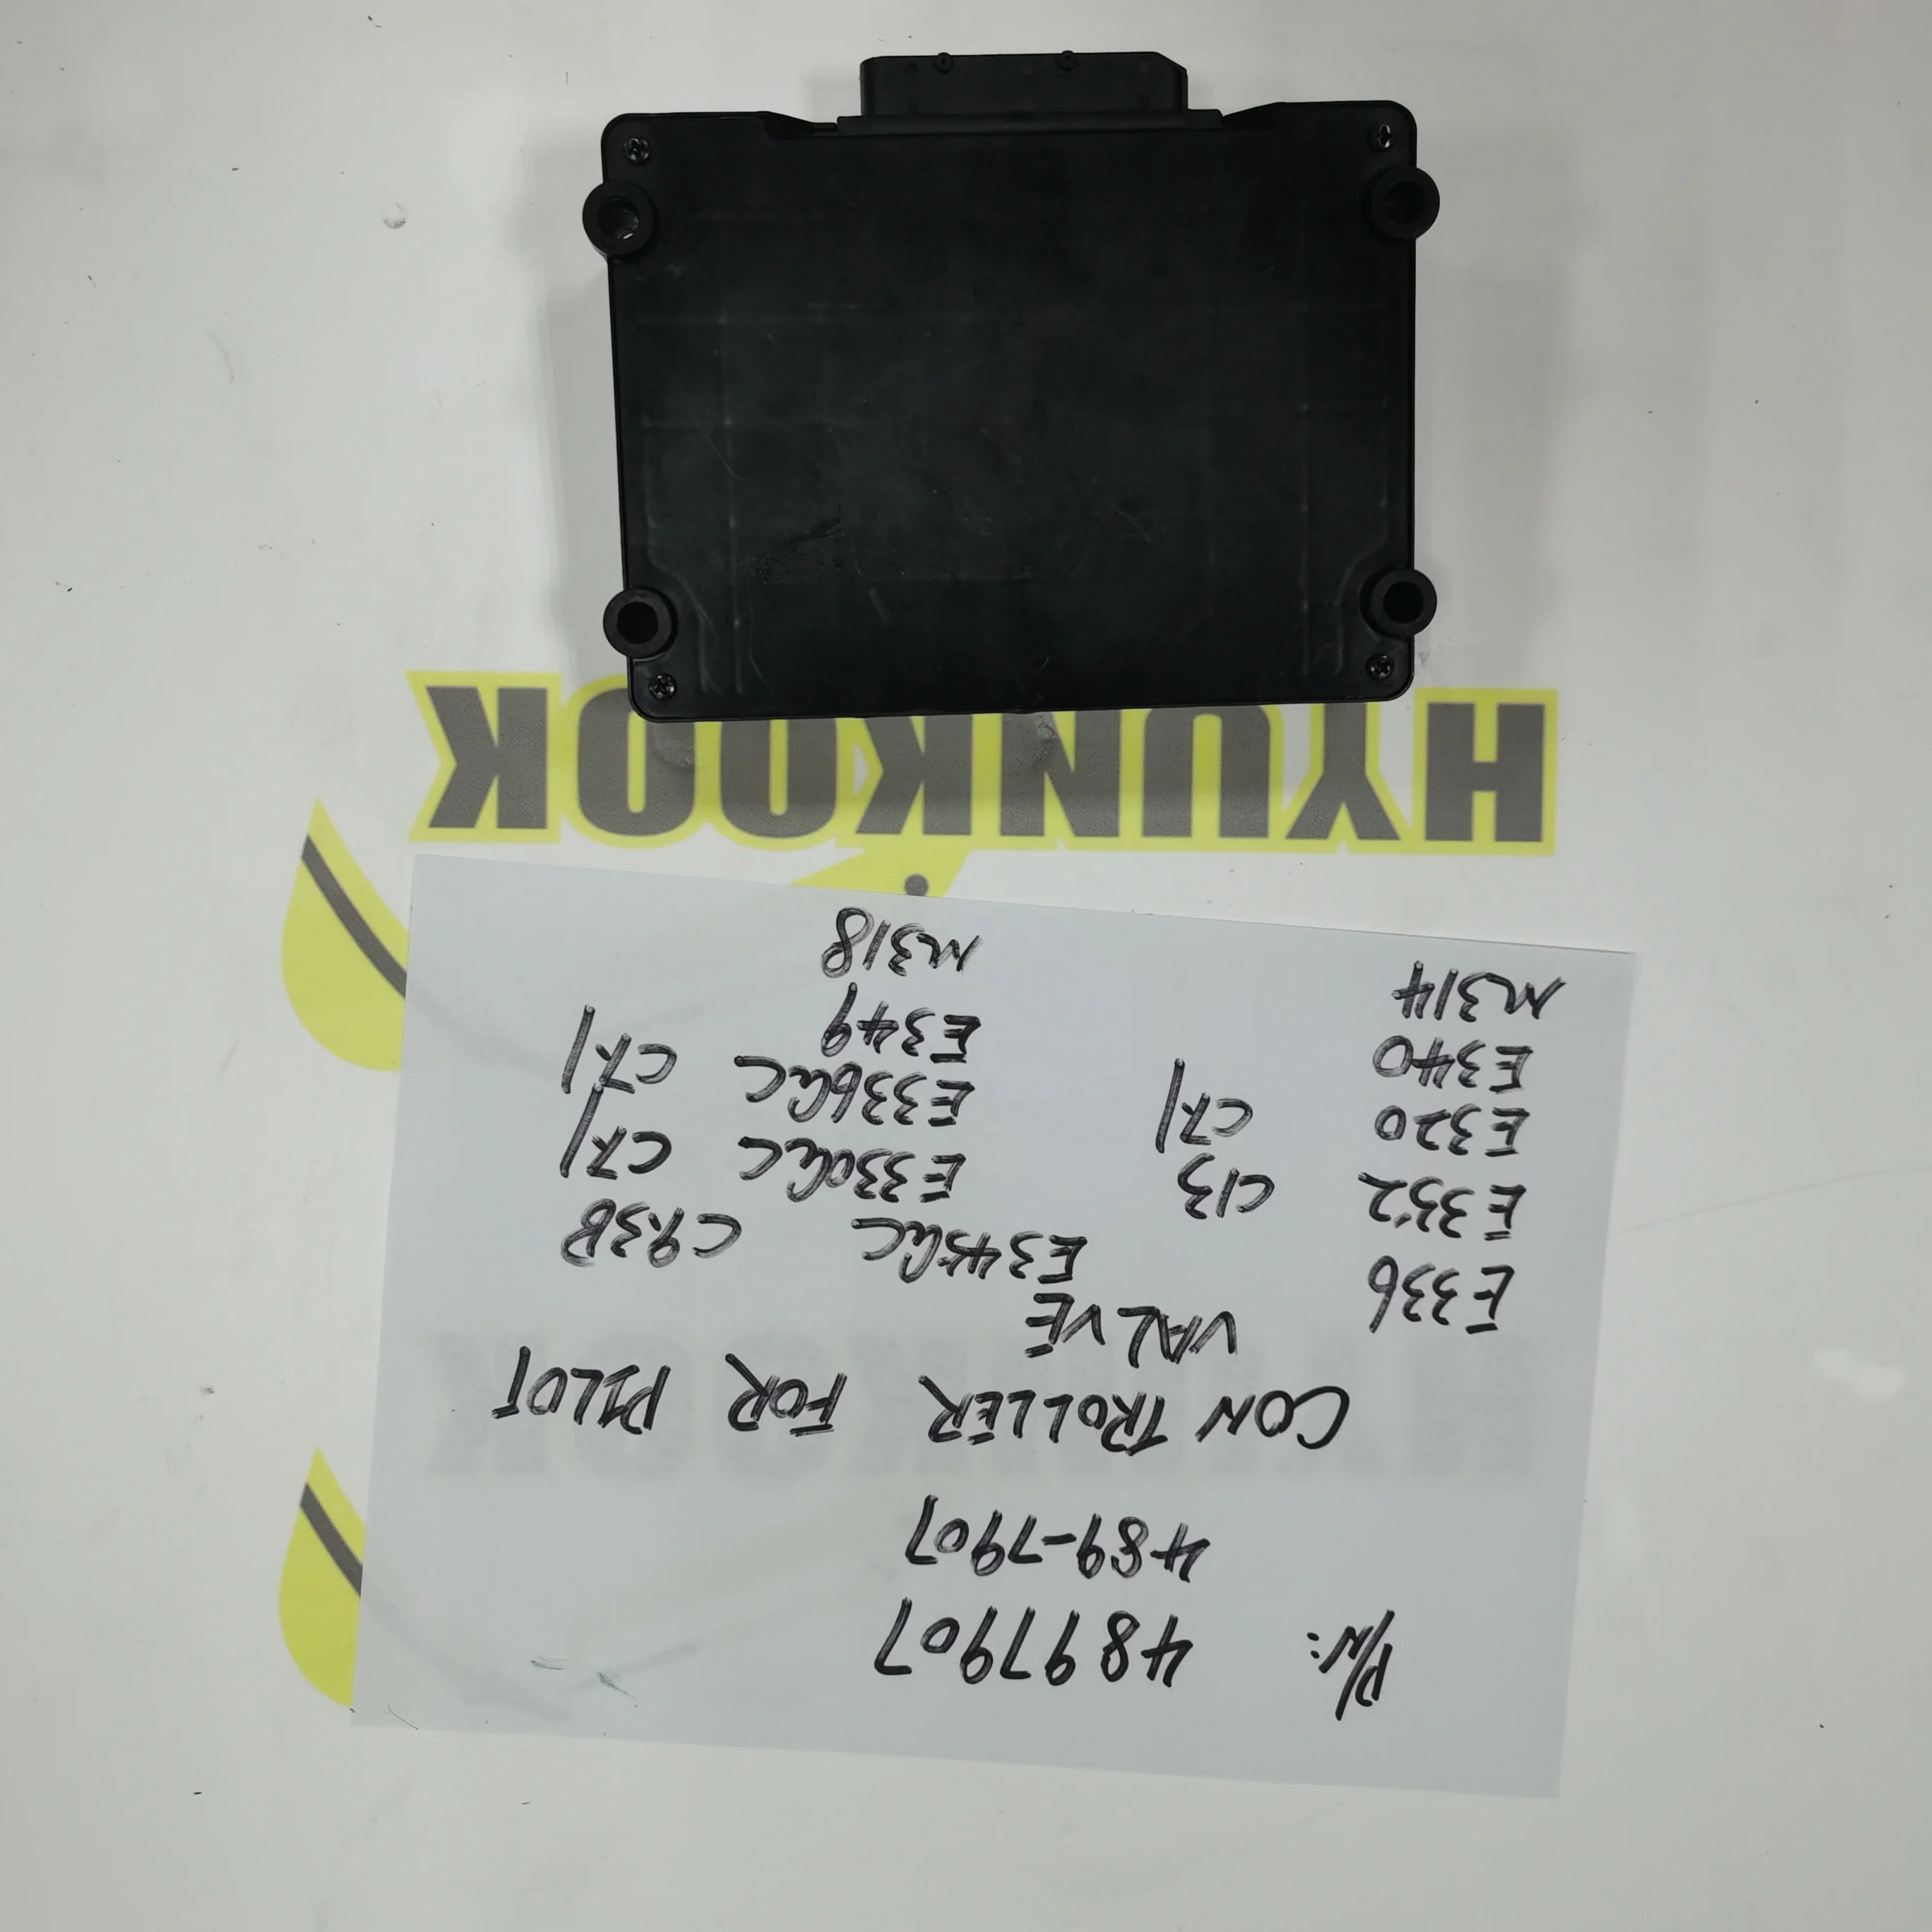 P/N: 4897907
489-7907
CONTROLLER FOR PILOT
VALVE
E336 E345GC C93B
E352 C13 E330GC C71
E320 C71 E336GC C71
E340 E349
M314 M318
HYUNKOOK